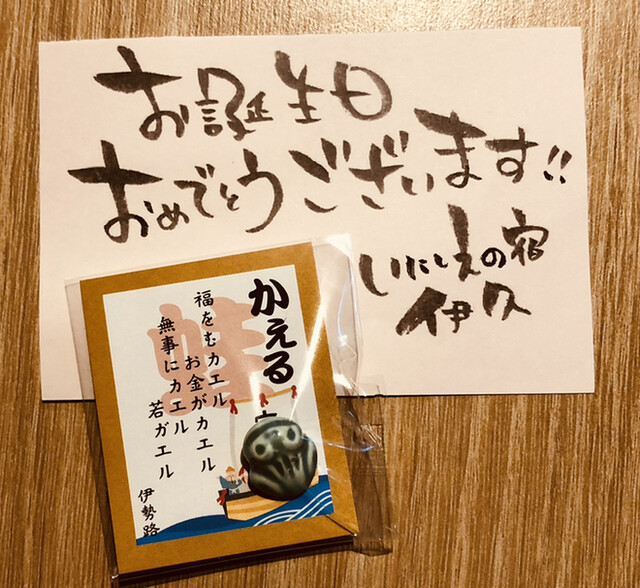 お誕生日
おめでとうございます!!
いにしえの宿
伊久
かえる
福をむカエル
お金がカエル
無事にカエル
若ガエル
伊勢路